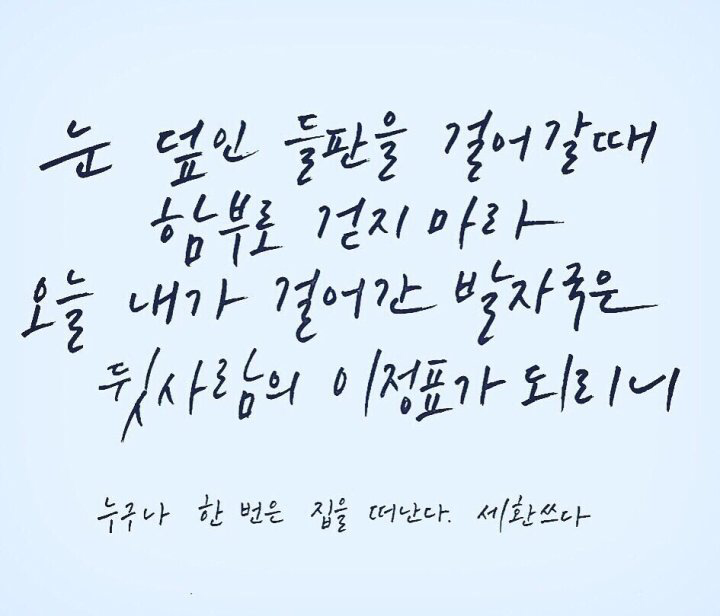 눈 덮인 들판을 걸어갈때
함부로 걷지 마라
오늘 내가 걸어간 발자국은
뒷사람의 이정표가 되리니
누구나 한 번은 집을 떠난다. 세환쓰다